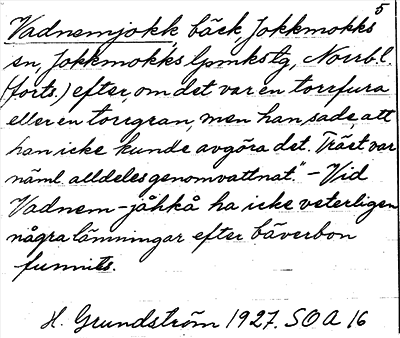 5
Vadnemjokk, bäck, Jokkmokks
sn, Jokkmokks lpmkstg, Norrb.l.
(forts.) efter, om det var en torrfura
eller en torrgran, men han sade, att
han icke kunde avgöra det. Träet var
näml. alldeles genomvattnat." - Vid
Vadnem-jåhkå ha icke veterligen
några lämningar efter bäverbon
funnits.
H. Grundström 1927. SOA 16